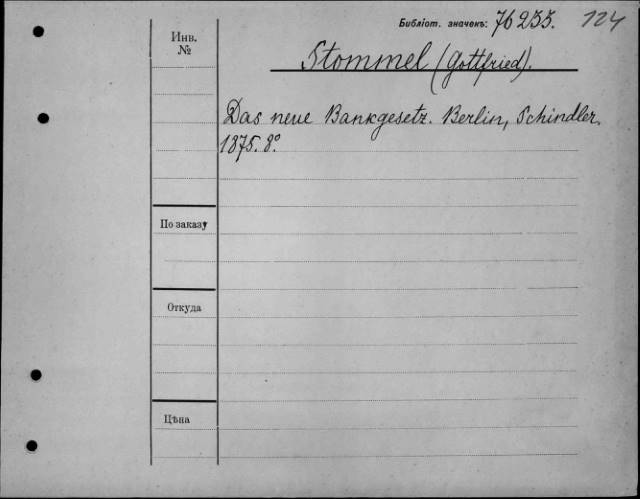 Библіот. значекъ: 76233. 124
Инв.
№
Stommel (Gottfried).
Das neue Bankgesetz. Berlin, Schindler.
1875. 8°.
По заказу
Откуда
Цѣна